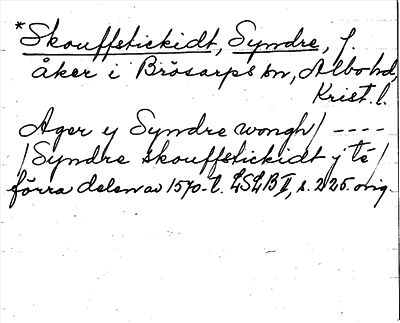 *Skouffstickidt, Syndre, f.
åker i Brösarps sn, Albo hd,
Krist. l.
Ager y Syndre wongh/ ----
/Syndre skouffstickidt j té/
förra delen av 1570-t. LSLB II, s. 225. orig.